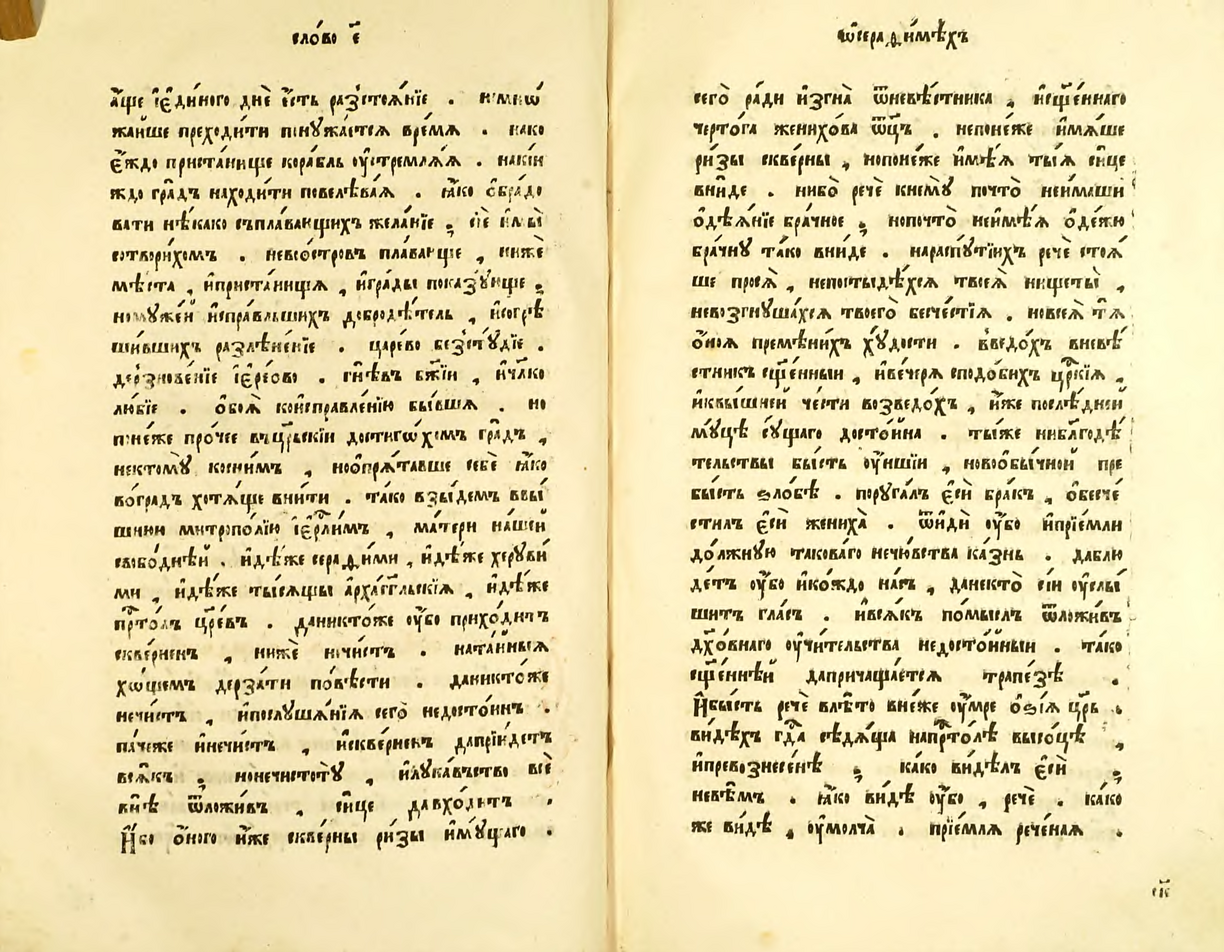 сло́во е҃
а҆́ще і҆є҆ди́ного днѐ є҆́сть разⸯстоѧ́нїе . нѡ
жа́йше преходи́ти пѡнꙋжа́етсѧ вре́мѧ . ꙗ҆ко
є҆́ждо приста́нище кора́бль ᲂу҆стремлѧ́ѧ .
ждо гра́дъ находи́ти повелѣва́ѧ . ꙗ҆́ко ѻ҆бра́до
вати нѣ́како съпла́вающихъ жела́нїе , сїѐ и҆ мы̀
сотвори́хомъ . невоѻ҆́стровъ пла́вающе , нижѐ
мѣ́ста , и҆приста́нищѧ , и҆гра́ды пока́зꙋюще ,
номꙋже́й и҆спра́вльшихъ добродѣ́тель , и҆согрѣ
ши́вшихъ разлѣне́нїе . царе́во безⸯстꙋ́дїе .
дерⸯзнове́нїе і҆є҆ре́ово . гнѣ́въ бж҃їи , и҆чл҃ко
лю́бїе . ѻ҆боѧ̀ коисправле́нїю бы́вшѧ . но
поне́же про́чее въцр҃ьскїи дости́гѡхомъ гра́дъ ,
нектомꙋ̀ косни́мъ , ноѻ҆прѧ́тавше себѐ ꙗ҆́ко
во́градъ хотѧ́ще вни́ти . та́ко взы́демъ ввы́
шнии митропо́лїю і҆є҆рⷭ҇ли́мъ , ма́тери на́шей
свобо́днѣй . и҆дѣ́же серафи́ми , и҆дѣ́же херꙋви́
ми , и҆дѣ́же ты́сѧщы а҆рха́гг҃льскїѧ , и҆дѣ́же
прⷭ҇то́лъ цр҃е́въ . даникто́же ᲂу҆́бо прихо́дитъ
скве́рненъ , нижѐ нечи́стъ . ната́йныѧ
хо́щемъ дерза́ти по́вѣсти . даникто́же
нечи́стъ , и҆послꙋша́нїѧ сего̀ недосто́инъ .
па́чеже и҆нечи́стъ , и҆скве́рненъ даприи́детъ
всѧ́къ , нонечистотꙋ̀ , и҆лꙋка́въство всѐ
внѣ̀ ѿложи́въ , си́це давхо́дитъ .
И҆́бо ѻ҆́ного и҆́же скве́рны ри́зы и҆мꙋ́щаго .
ѡ҆серафи́мѣхъ
сего̀ ра́ди и҆згна̀ ѿневѣ́стника , и҆сщ҃е́ннаго
черто́га женихо́ва ѻ҆ц҃ъ . непоне́же и҆мѧ́ше
ри́зы скве́рны , нопоне́же и҆мѣ́ѧ ты́ѧ си́це
вни́де . ни́бо речѐ кнемꙋ̀ почто̀ неи́маши
ѻ҆дѣѧ́нїе бра́чное , нопочто̀ неи҆мѣ́ѧ ѻ҆де́жю
бра́чнꙋ та́ко вни́де . нараспꙋ́тїихъ речѐ стоѧ̀
ше просѧ̀ , непостыдѣ́хсѧ твоеѧ̀ нищеты̀ ,
невозгнꙋша́хсѧ твоего̀ безче́стїѧ . новсеѧ̀ тѧ̀
ѻ҆́ноѧ премѣни́хъ хꙋ́дости . введо́хъ вневѣ́
стникъ сщ҃е́нныи , и҆ве́черѧ сподо́бихъ црⷭ҇кїѧ ,
и҆квы́шней че́сти возведо́хъ , и҆́же послѣ́дней
мꙋ́цѣ сꙋ́щаго досто́йна . ты́же нибл҃годѣ́
тельствы бы́сть ᲂу҆́ншїи , новоѻ҆бы́чной пре
бы́сть ѕло́бѣ . порꙋга́лъ є҆сѝ бра́къ , ѻ҆безче́
стилъ є҆сѝ жениха̀ . ѿидѝ ᲂу҆́бо и҆прїемлѝ
до́лжнꙋю такова́го нечю́вства ка́знь . даблю
де́тъ ᲂу҆́бо и҆ко́ждо на́съ , данекто̀ сїи ᲂу҆слы́
шитъ гла́съ . и҆всѧ́къ по́мыслъ ѿложи́въ
дх҃о́внаго ᲂу҆чи́тельства недосто́йныи . та́ко
сщ҃е́ннѣй дапричаща́етсѧ трапе́зѣ .
И҆бы́сть речѐ влѣ́то вне́же ᲂу҆́мре ѻ҆ѕі́ѧ цр҃ь .
ви́дѣхъ гдⷭ҇а сѣдѧ́ща напрⷭ҇то́лѣ высо́цѣ ,
и҆превознесе́нѣ , ка́ко ви́дѣлъ є҆сѝ ,
невѣ́мъ . ꙗ҆́ко ви́дѣ ᲂу҆́бо , речѐ . ка́ко
же ви́дѣ , ᲂу҆молча̀ . прїе́млѧ рече́наѧ .